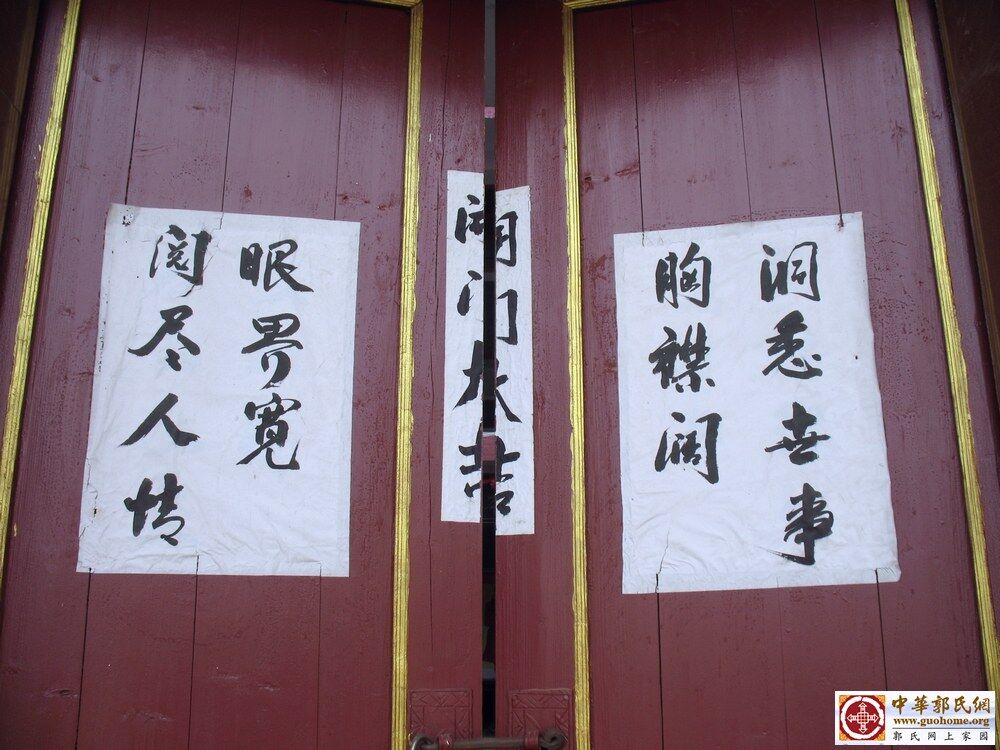 洞悉世事
胸襟阔
開门大吉
眼界寬
阅尽人情
中華郭氏網
www.guohome.org
郭氏网上家园